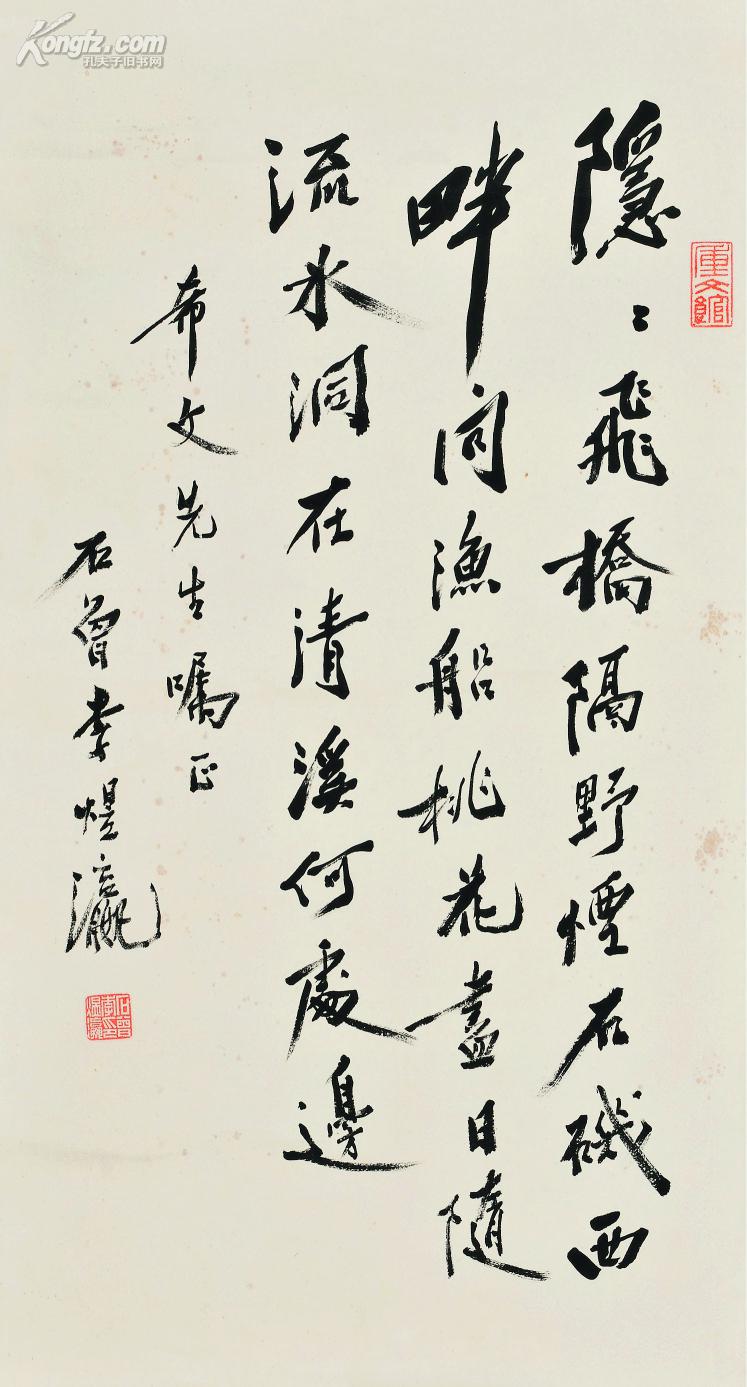 隱〻飛橋隔野煙石磯西
畔問漁船桃花盡日隨
流水洞在清溪何處邊
希文先生囑正
石曾李煜瀛
石曾李煜瀛
Kongfz.com
孔夫子旧书网